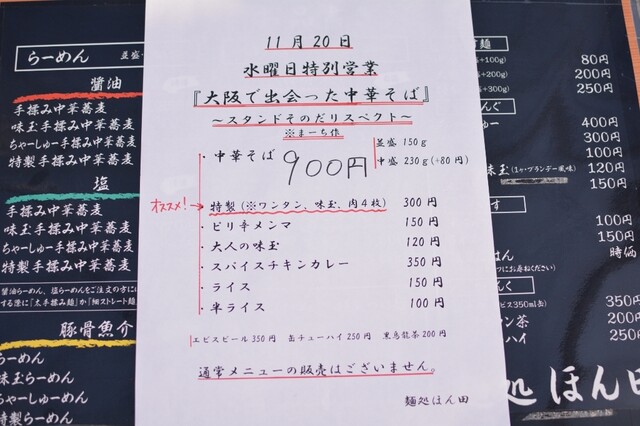 らーめん
醤油
手揉み中華蕎麦
味玉手揉み中華蕎麦
ちゃーしゅー手揉み中華蕎麦
特製手揉み中華蕎麦
塩
手揉み中華蕎麦
味玉手揉み中華蕎麦
ちゃーしゅー手揉み中華蕎麦
特製手揉み中華蕎麦
醤油らーめん、塩らーめんをご注文の方に
する際に「太手揉み麺」か「細ストレート麺
豚骨魚介
らーめん
味玉らーめん
ちゃーしゅー
特製らーめん
11月20日
水曜日特別営業
『大阪で出会った中華そば』
~スタンドそのだリスペクト~
※まーち作
・中華そば 900円
並盛 150g
中盛 230g(+80円)
オススメ!
特製(※ワンタン、味玉、肉4枚) 300円
・ピリ辛メンマ 150円
・大人の味玉 120円
・スパイスチキンカレー 350円
・ライス 150円
・半ライス 100円
エビスビール350円 缶チューハイ250円 黒烏龍茶200円
通常メニューの販売はございません。
麺処ほん田
麺
+100g) 80円
+200g) 200円
+300g) 250円
400円
300円
100円
味玉(1ヶ・ブランデー風味) 120円
150円
す
100円
150円
時価
ビス350ml缶) 350円
ン茶 200円
ハイ 250円
処ほん田